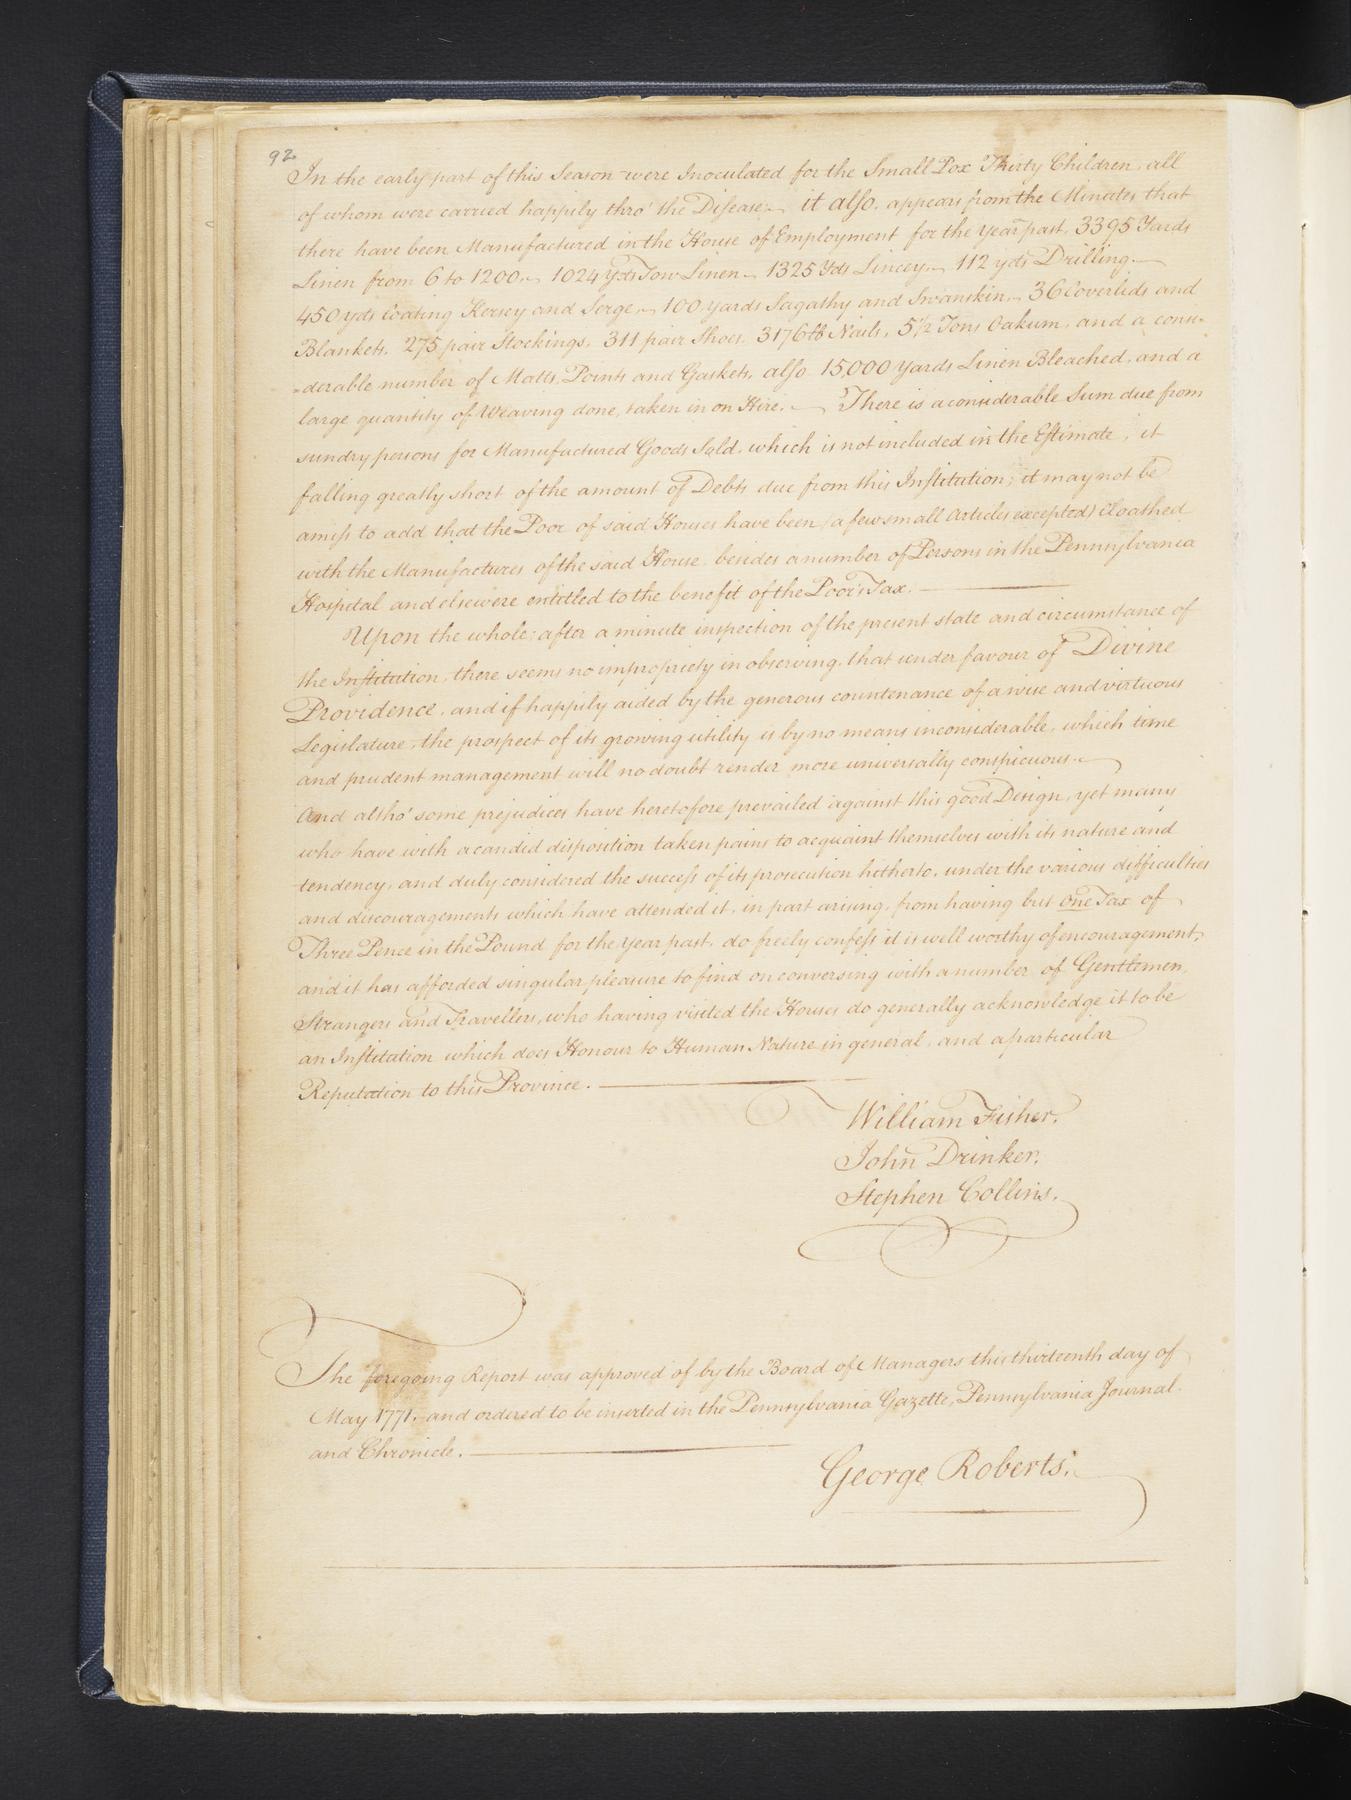 92
In the early part of this Season were Inoculated for the Small Pox Thirty Children, all
of whom were carried happily thro' the Disease. it also appears from the Minutes, that
there have been Manufactured in the House of Employment for the Year past, 3395 Yards
Linen from 6 to 1200. 1024 Yds Tow Linen 1325 Yds Lincey. 112 yds Drilling.
450 yds Coating Kersey and Serge. 100 yards Sagathy and Swanskin. 36 Coverlids and
Blankets, 275 pair Stockings, 311 pair Shoes. 3176 lb Nails, 5 1/2 Tons Oakum, and a consi-
-derable number of Matts, Points and Gaskets, also 15,000 Yards Linen Bleached, and a
large quantity of Weaving done, taken in on Hire. There is a considerable Sum due from
sundry persons for Manufactured Goods Sold, which is not included in the Estimate, it
falling greatly short of the amount of Debts due from this Institution; it may not be
amiss to add that the Poor of said Houses have been (a few small Articles excepted) Cloathed
with the Manufactures of the said House, besides a number of Persons in the Pennsylvania
Hospital and elsewere entitled to the benefit of the Poor's Tax.
Upon the whole; after a minute inspection of the present state and circumstance of
the Institution, there seems no impropriety in observing, that under favour of Divine
Providence, and if happily aided by the generous countenance of a wise and virtuous
Legislature, the prospect of its growing utility is by no means inconsiderable, which time
and prudent management will no doubt render more universally conspicuous.
And altho' some prejudices have heretofore prevailed against this good Design, yet many
who have with a candid disposition taken pains to acquaint themselves with its nature and
tendency, and duly considered the success of its prosecution hitherto, under the various difficulties
and discouragements which have attended it, in part arising, from having but One Tax of
Three Pence in the Pound for the Year past, do freely confess it is well worthy of encouragement,
and it has afforded singular pleasure to find on conversing with a number of Gentlemen,
Strangers and Travellers, who having visited the Houses do generally acknowledge it to be
an Institution which does Honour to Human Nature in general, and a particular
Reputation to this Province.
William Fisher.
John Drinker.
Stephen Collins.
The foregoing Report was approved of by the Board of Managers this thirteenth day of
May 1771, and ordered to be inserted in the Pennsylvania Gazette, Pennsylvania Journal.
and Chronicle.
George Roberts.